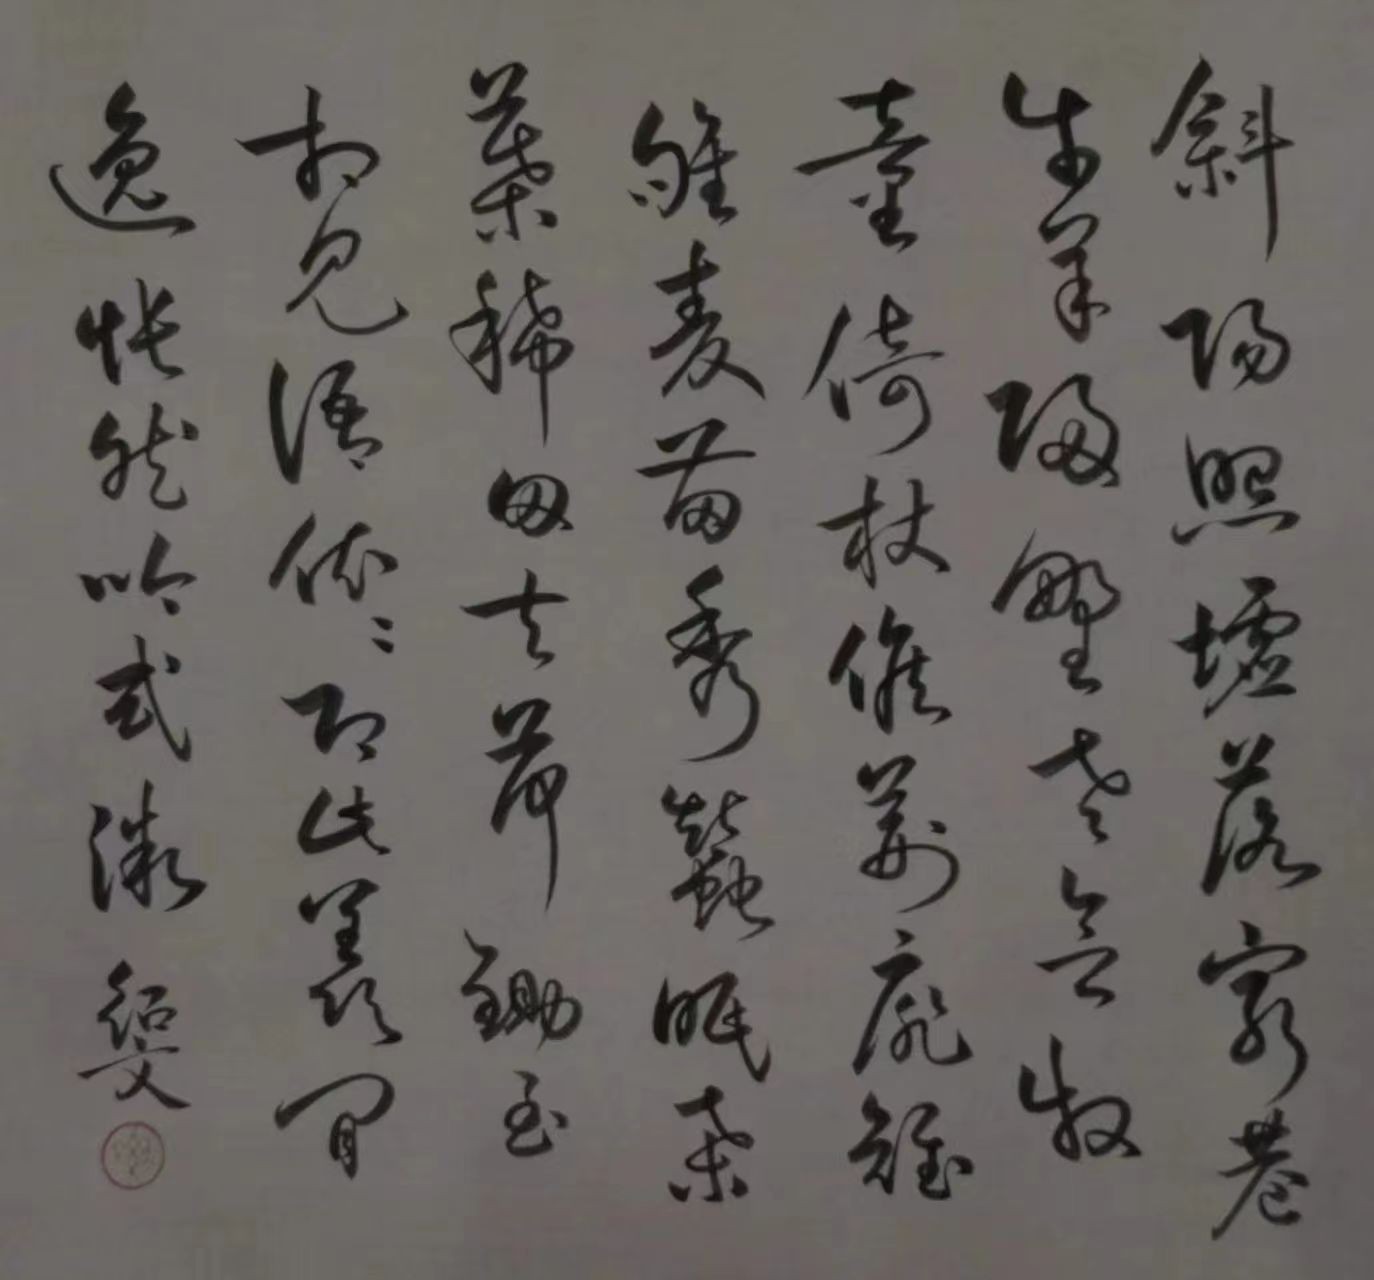 斜陽照墟落窮巷
牛羊歸野老念牧
童倚杖候荆扉雉
雊麥苗秀蠶眠桑
葉稀田夫荷鋤至
相見語依〻即此羨閒
逸悵然吟式微